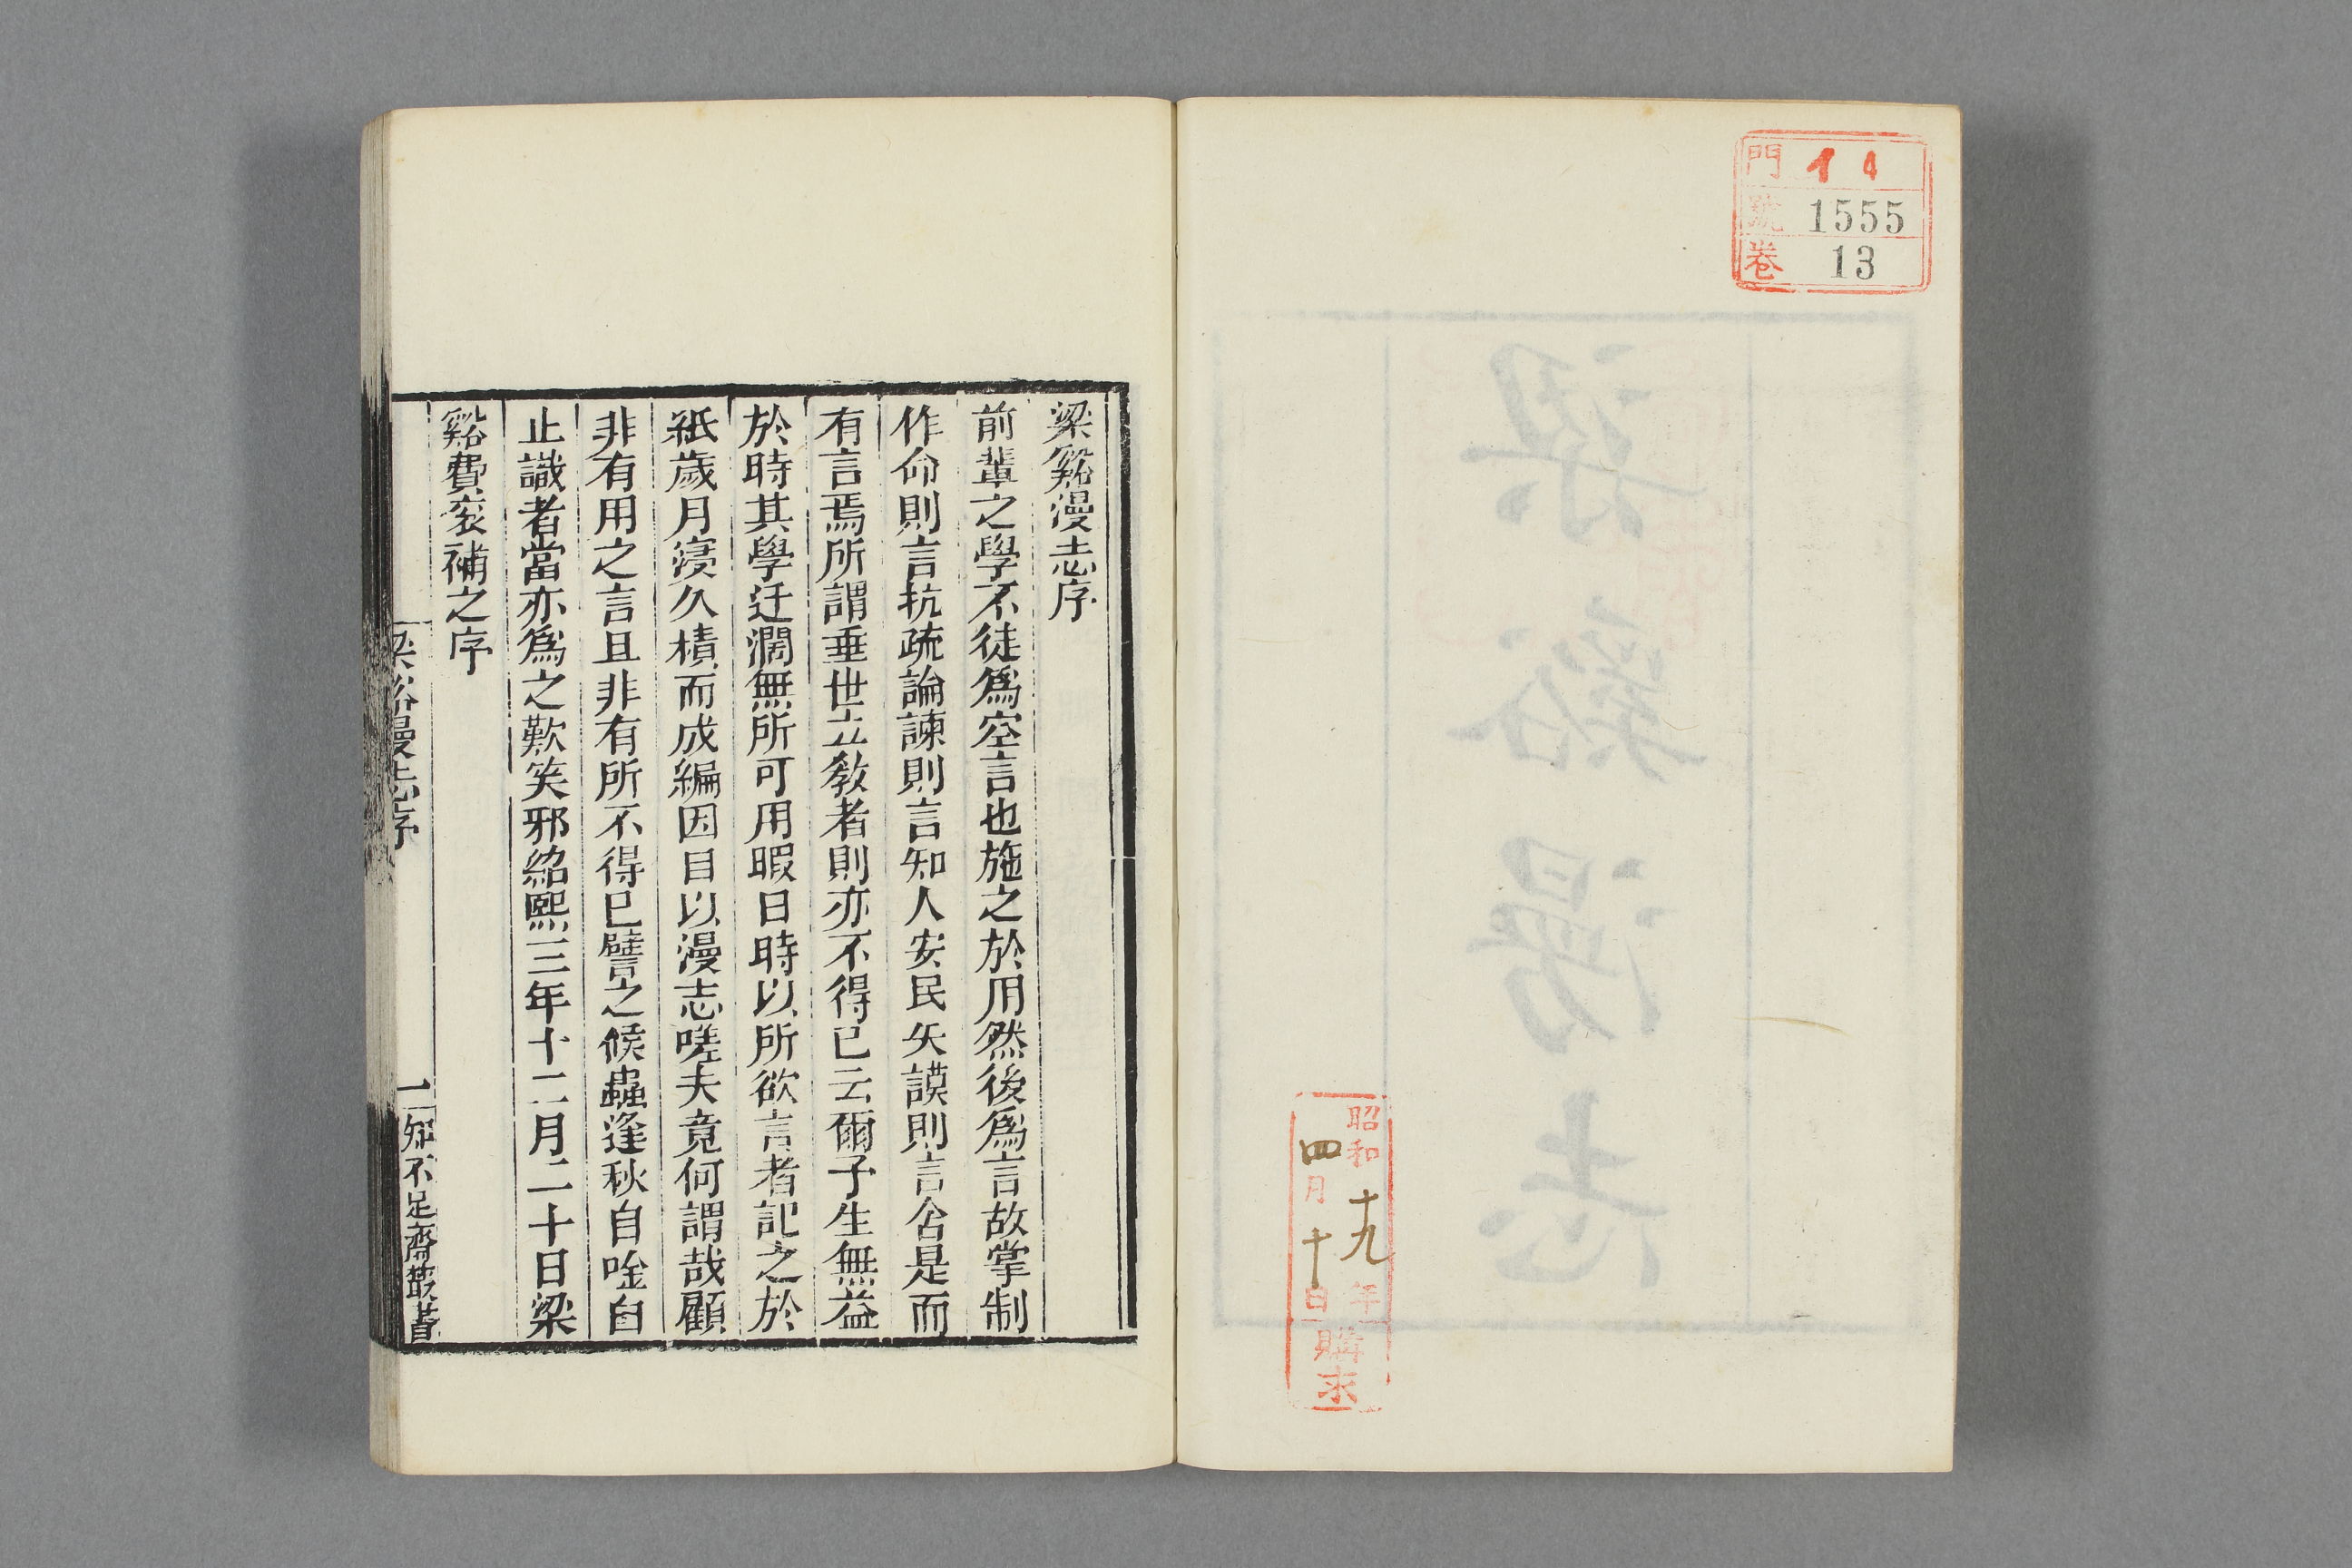 門 14
號 1555
卷 13
昭和十九年
四月十日
購求
梁谿漫志
梁谿漫志序
前輩之學不徒爲空言也施之於用然後爲言故掌制
作命則言抗疏論諫則言知人安民矢謨則言舍是而
有言焉所謂垂世立敎者則亦不得已云爾予生無益
於時其學迂濶無所可用暇日時以所欲言者記之於
紙歲月寖久積而成編因目以漫志嗟夫竟何謂哉顧
非有用之言且非有所不得已譬之候蟲逢秋自吟自
止識者當亦爲之歎笑邪紹熙三年十二月二十日梁
谿費衮補之序
梁谿漫志序
一
知不足齋叢書